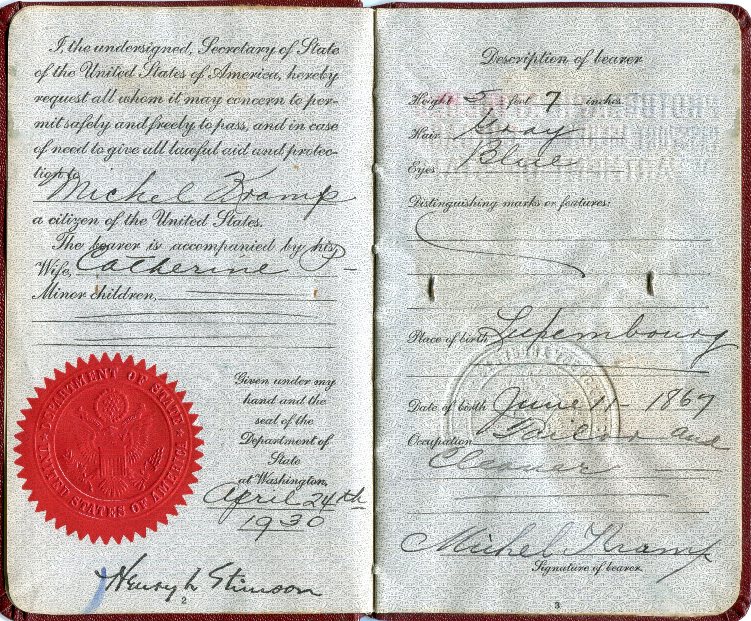 I, the undersigned, Secretary of State
of the United States of America, hereby
request all whom it may concern to per-
mit safely and freely to pass, and in case
of need to give all lawful aid and protec-
tion to
Michel Kramp
a citizen of the United States.
The bearer is accompanied by his
Wife, Catherine P -
Minor children,
DEPARTMENT OF STATE
UNITED STATES OF AMERICA
Given under my
hand and the
seal of the
Department of
State
at Washington,
April 24th
1930
Henry L Stimson
2
Description of bearer
Height 5 feet 7 inches.
Hair Gray
Eyes Blue
Distinguishing marks or features:
Place of birth Luxembourg
Date of birth June 11 - 1867
Occupation Tailor and
Cleaner
Michel Kramp
Signature of bearer.
3